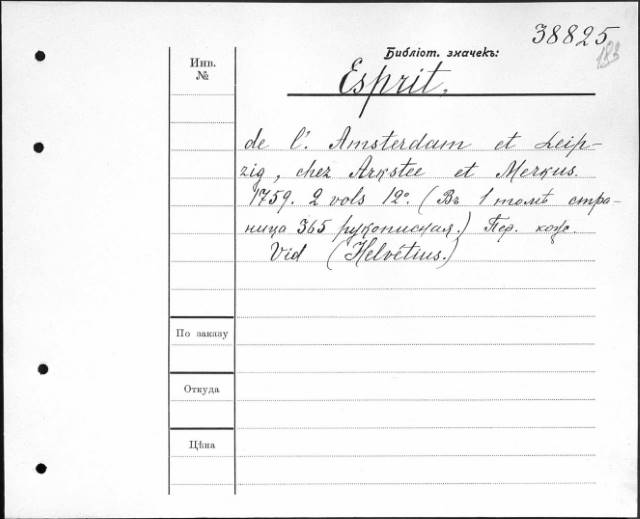 38825
183
Библіот. значекъ:
Инв.
№
Esprit.
de l'. Amsterdam et Leip-
zig, chez Arkstee et Merkus.
1759. 2 vols 12°. (Въ 1 томѣ стра-
ница 365 рукописная.) Пер. кож.
Vid (Helvétius.)
По заказу
Откуда
Цѣна